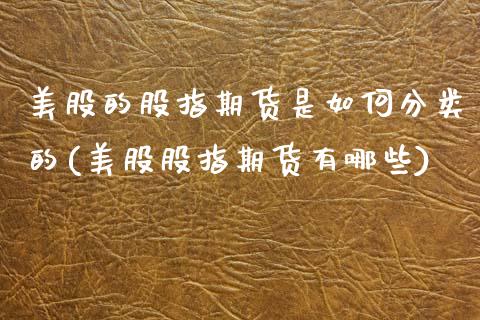 美股的股指期货是如何分类
的(美股股指期货有哪些)